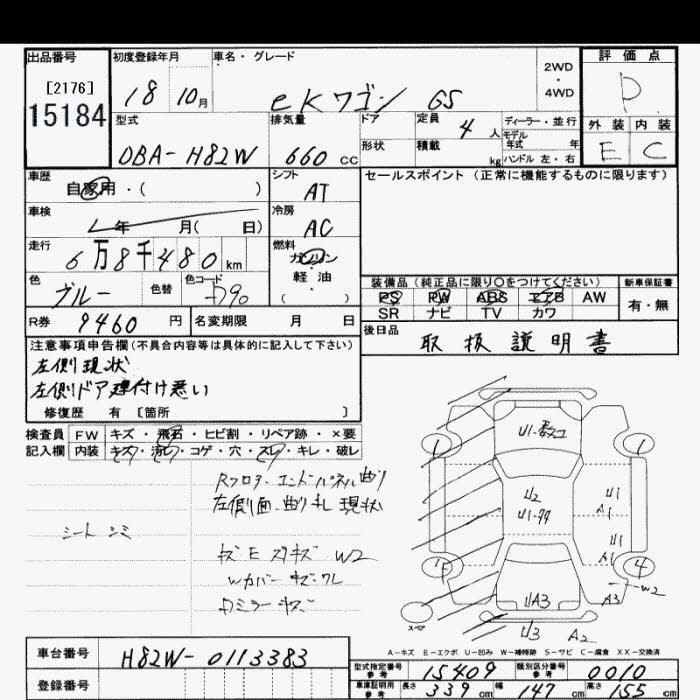 出品番号
[2176]
15184
初度登録年月
18 10月
車名・グレード
eKワゴン GS
2WD
・
4WD
評価点
P
型式
DBA-H82W
排気量
660 cc
ドア
形状
定員
4 人
積載
kg
ディーラー・並行
モデル
年式 年
ハンドル 左・右
外装 内装
E C
車歴
自家用・( )
シフト
AT
セールスポイント (正常に機能するものに限ります)
車検
年 月( 日)
冷房
AC
走行
6万8千480 km
燃料
ガソリン
・
軽・油
( )
色
ブルー
色替
色コード
D90
装備品 (純正品に限り○をつけてください)
PS PW ABS エアB AW
SR ナビ TV カワ
新車保証書
有・無
R券
9460 円
名変期限 月 日
後日品
取扱説明書
注意事項申告欄(不具合内容等は具体的に記入して下さい)
左側現状
左側ドア建付け悪い
修復歴 有 [箇所 ]
検査員
記入欄
FW キズ・飛石・ヒビ割・リペア跡・×要
内装 キズ・汚れ・コゲ・穴・スレ・キレ・破レ
Rフロアエンドパネル曲り
左側面曲り凹現状
シートシミ
W2
Wカバーキズワレ
Dミラーキズ
U2
U1
A1
U1
A1
W2
A3
UA3
U3 A2
4
スペア
A-キズ E-エクボ U-凹み W-補修跡 S-サビ C-腐食 XX-交換済
車台番号
H82W-0113383
登録番号
型式指定番号
参考
15409
類別区分番号
参考
0010
車庫証明用
参考
長さ 339 cm 幅 147 cm 高さ 155 cm